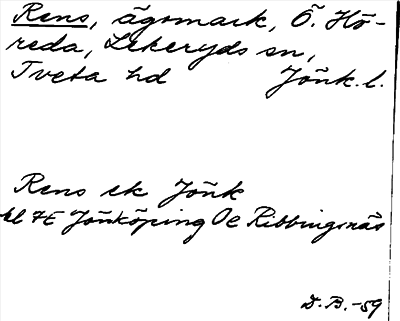 Rens, ägomark, Ö. Hö-
reda, Lekeryds sn,
Tveta hd Jönk. l.
Rens ek Jönk
bl 7E Jönköping Oe Ribbingsnäs
D. B. -59